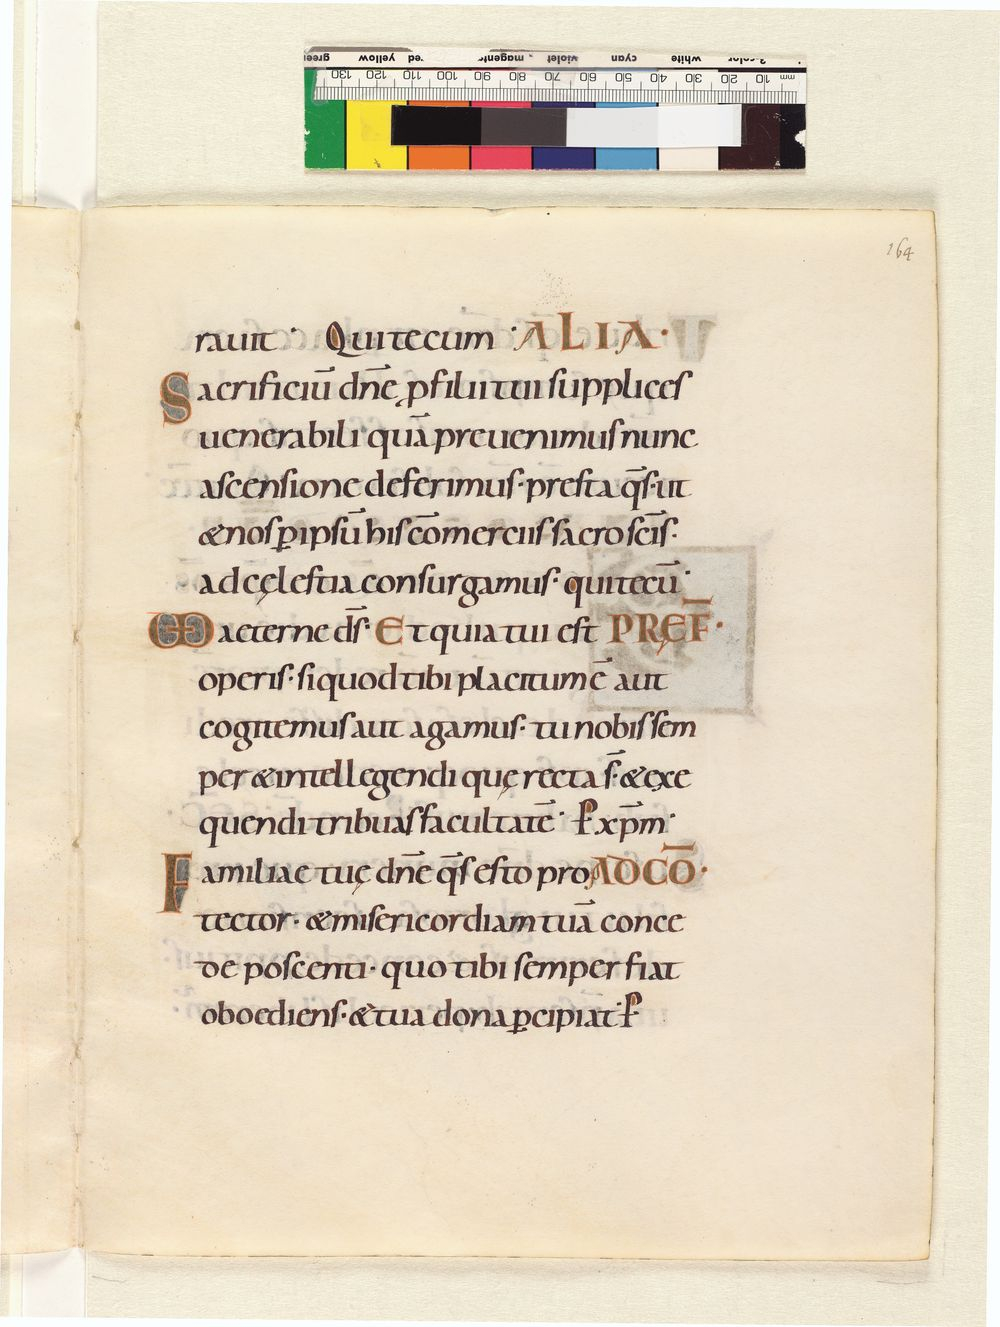 green yellow red magenta violet cyan white 3-color
130 120 110 100 90 80 70 60 50 40 30 20 10 mm
164
rauit · Quitecum · ALIA ·
Sacrificiū dn̄e ꝓ filii tui supplices
uenerabili quā preuenimus nunc
ascensione deferimus · presta qs̄ · ut
& nos ꝑ ipsū his cōmerciis sacro scīs ·
ad cęlestia consurgamus · qui tecū ·
VD aeterne ds̄ · Et quia tui est PRĘF̄ ·
operis · si quod tibi placitum ē aut
cogitemus aut agamus · tu nobis sem
per & intellegendi quę recta s̄ · & exe
quendi tribuas facultatē · P xp̄m ·
Familiae tuę dn̄e qs̄ esto pro AD CŌ ·
tector · & misericordiam tuā conce
de poscenti · quo tibi semper fiat
oboediens · & tua dona ꝑcipiat · P